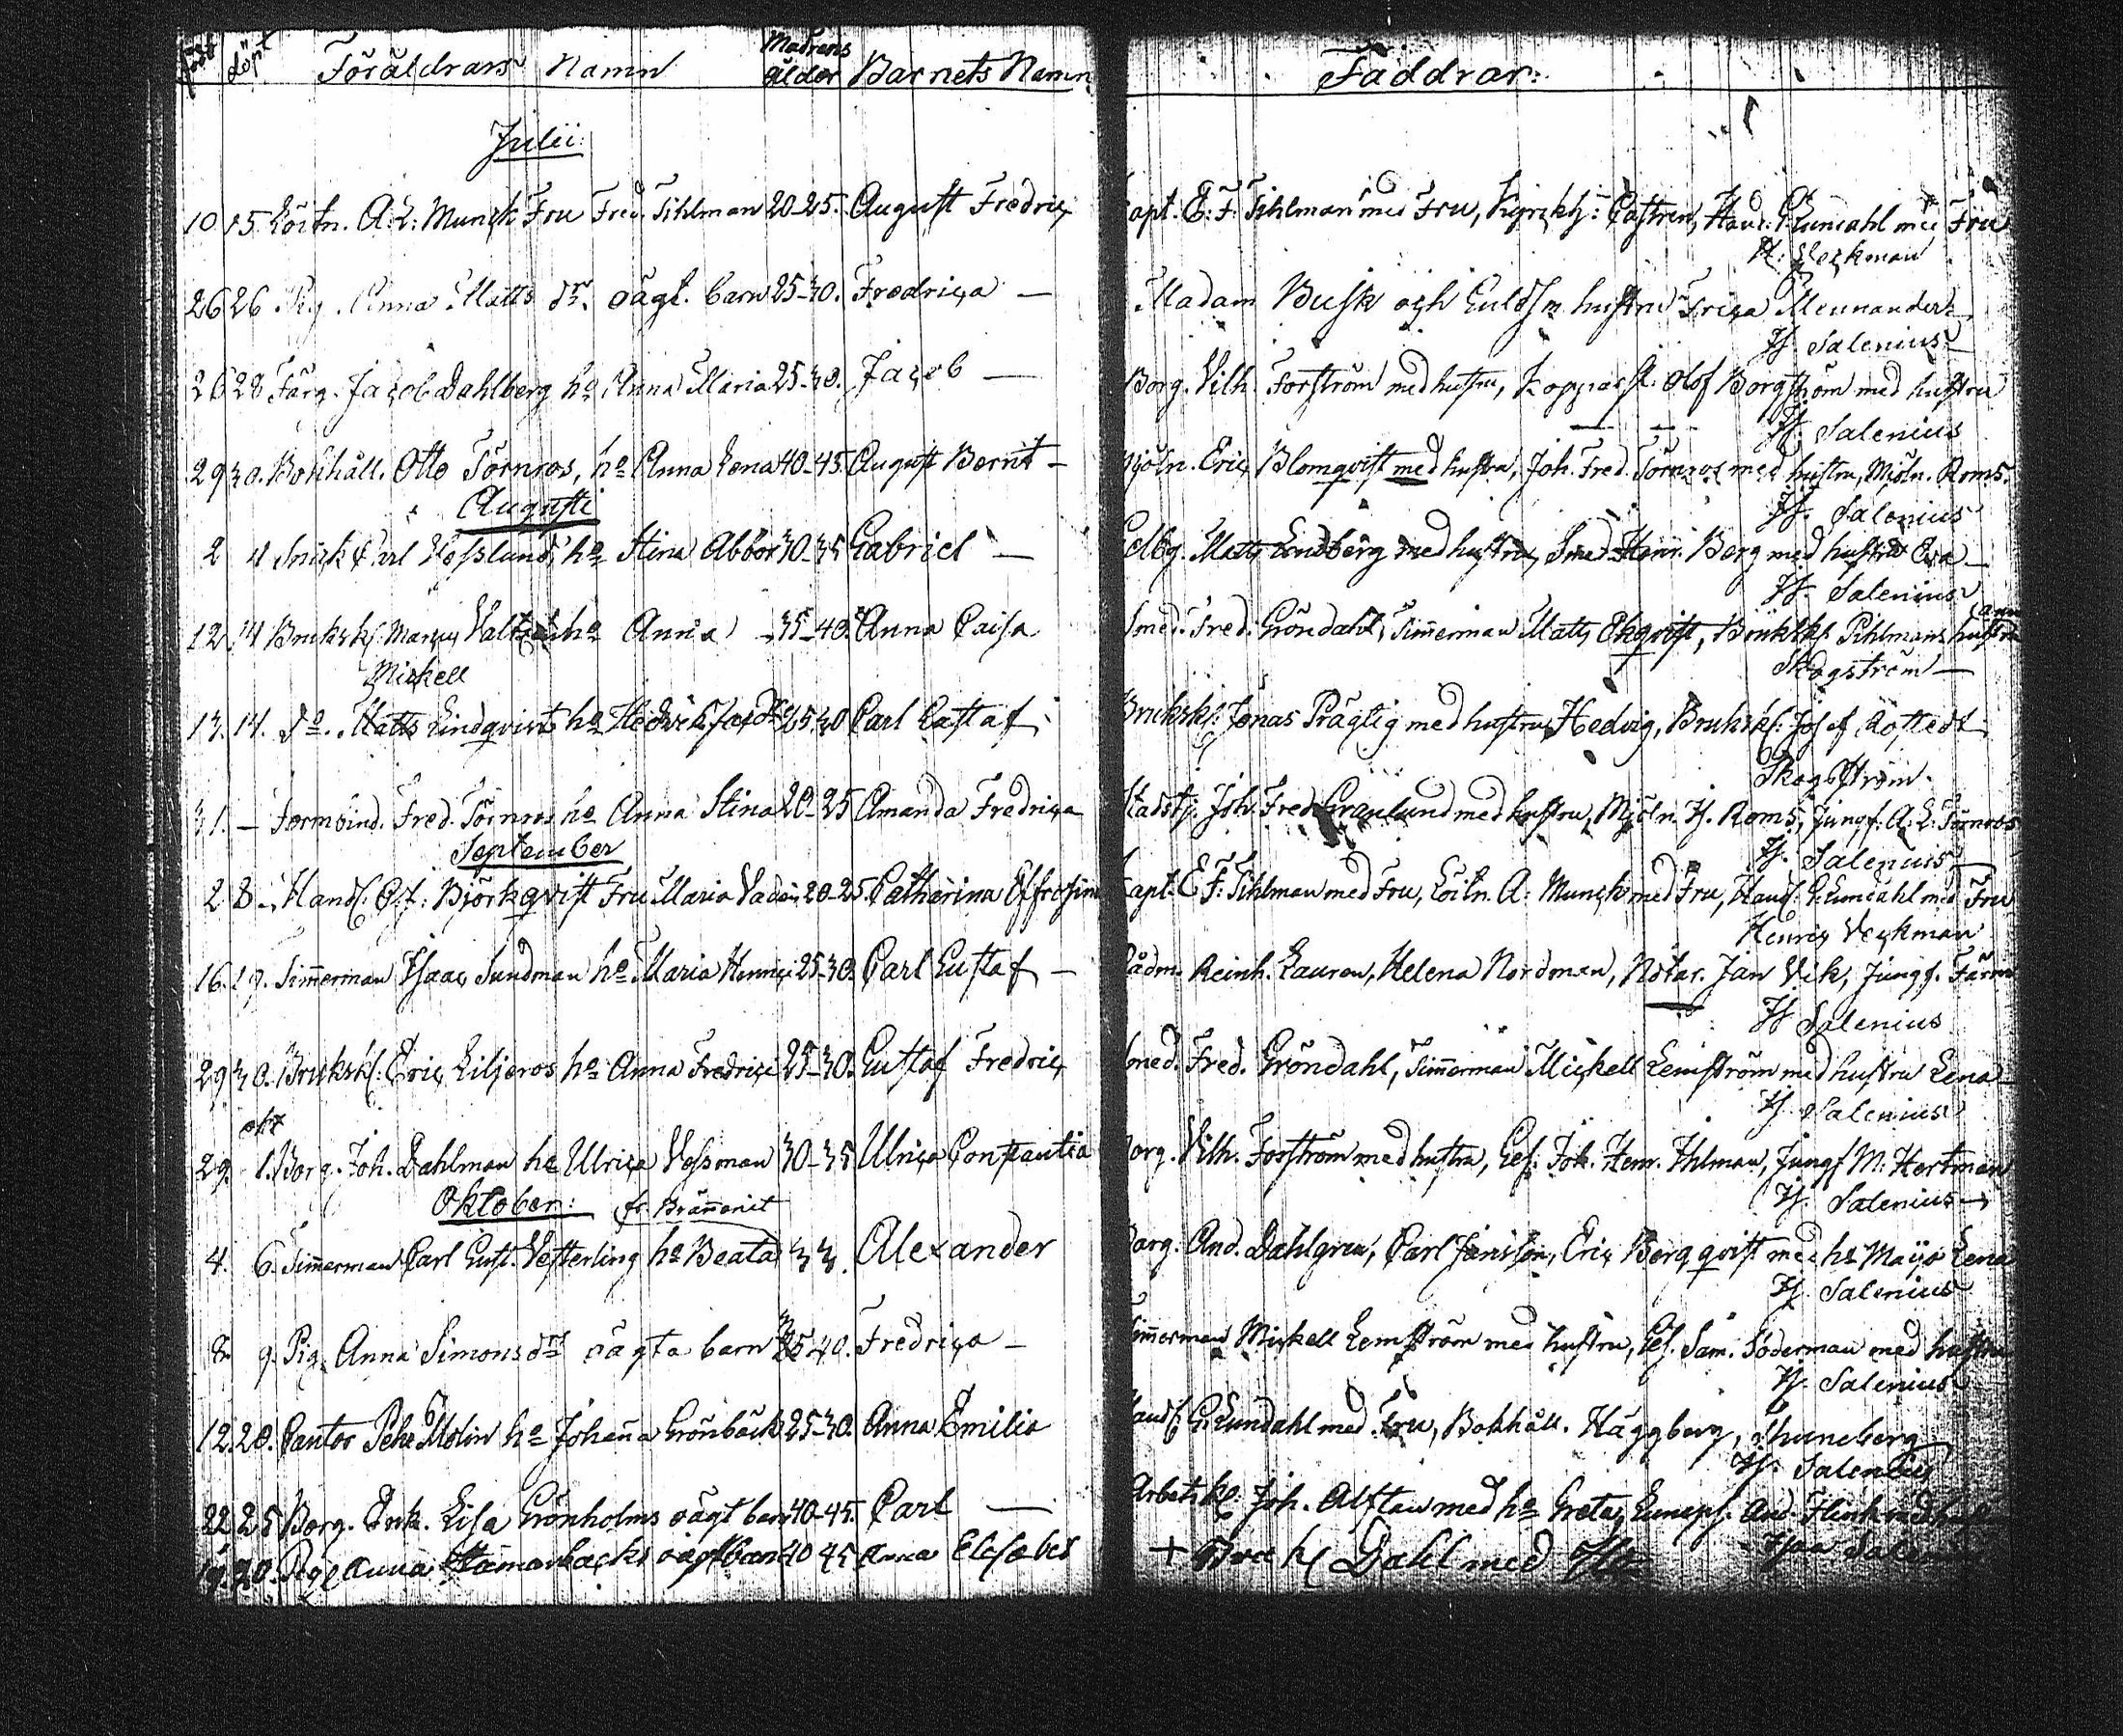 född döpt Föräldrars Namn Madrens ålder Barnets Namn Faddrar:
Julii:
10 15 Löitn. A: L: Munck Fru Fred. Tihlman 20-25. August Fredric
Capt. E: F: Tihlman med Fru, Castren, Hand: G. Lundahl med Fru
H: Veckman
26 26 Pig. Anna Matts dr. oägt. barn 25-30. Fredrica —
Madam Busk och Guldsm hustru Frica Mennander
Jf Salenius
26 28 Färg. Jacob Dahlberg ho Anna Maria 25-30. Jacob —
Borg. Vilh. Forström med hustru, Kopparsl. Olof Borgström med hustru
Jf. Salenius
29 30. Bokhåll. Otto Törnros, ho Anna Lena 40-45 August Bernt —
Mjöln. Eric Blomqvist med hustru, Joh. Fred. Törnros med hustru, Mjöln. Roms.
Jf. Salenius
Augusti
2 4 Snick Carl Vosslund ho Stina Abbor 30-35 Gabriel —
Matts Lindberg med hustru, Smed. Henr. Berg med hustru Eva —
Jf. Salenius
12. 14 Bruksk: ho Anna 35-40. Anna Caisa
Smed. Fred. Gröndahl, Timmerman Matts Ekqvist, Bruksk: Pihlmans hustru Anna
Mickell
Skogström —
13. 14. Do. Matts Lindqvist ho Hedvik 25-30 Carl Gustaf
Bruksk: Jonas Prägtig med hustru Hedvig, Bruksk: Josef
Skogström.
31. — Fred. Törnros ho Anna Stina 20-25 Amanda Fredrica
Stadstj. Joh. Fred. Granlund med hustru, Mjöln. H. Roms, Jungf. A: L: Törnroos
Jf. Salenius
September
2 8 Hand. C. J: Björkqvist Fru Maria Vadén 20-25. Catharina Effrosine
Capt. E: F: Tihlman med Fru, Löitn. A: Munck med Fru, Hand. G. Lundahl med Fru
Henric Veckman
16. 19. Timmerman Isaac Sundman ho Maria 25-30. Carl Gustaf —
Rådm. Reinh. Lauren, Helena Nordman, Notar. Jan Vik, Jungf.
Jf Salenius
29 30. Bruksk: Eric Liljeros ho Anna Fredrica 25-30. Gustaf Fredric
Smed. Fred. Gröndahl, Timmerman Mickell Lemström med hustru Lena
Jf. Salenius
okt
29. 1. Borg. Joh. Dahlman ho Ulrica Vossman 30-35 Ulrica Constantia
Borg. Vilh. Forström med hustru, Ges. Joh. Henr. Ihlman, Jungf M: Hertman
Jf. Salenius —
Oktober: fr.
4. 6. Timmerman Carl Gust. Vesterling ho Beata 33. Alexander
Borg. And. Dahlgren, Carl Jansson, Eric Bergqvist med ho Maija Lena
Jf. Salenius
8. 9. Pig. Anna Simonsdr oägta barn 35-40. Fredrica —
Timmerman Mickell Lemström med hustru, Ges. Sam. Söderman med hustru
Jf. Salenius
12. 20. Cantor Pehr Molin ho Johanna Grönbäck 25-30. Anna Emilia
Hand G. Lundahl med Fru, Bokhåll. Häggberg, Thuneberg
Jf. Salenius
22 25 Borg. Enk. Lisa Grönholms oägt barn 40-45. Carl —
Arbetsk: Joh. Alftan med ho Greta, And. Flink med
Isaa
19. 20. Pig Anna Hamarbacks oägt barn 40 45 Anna Elisabet
+ Bruk Dahl med